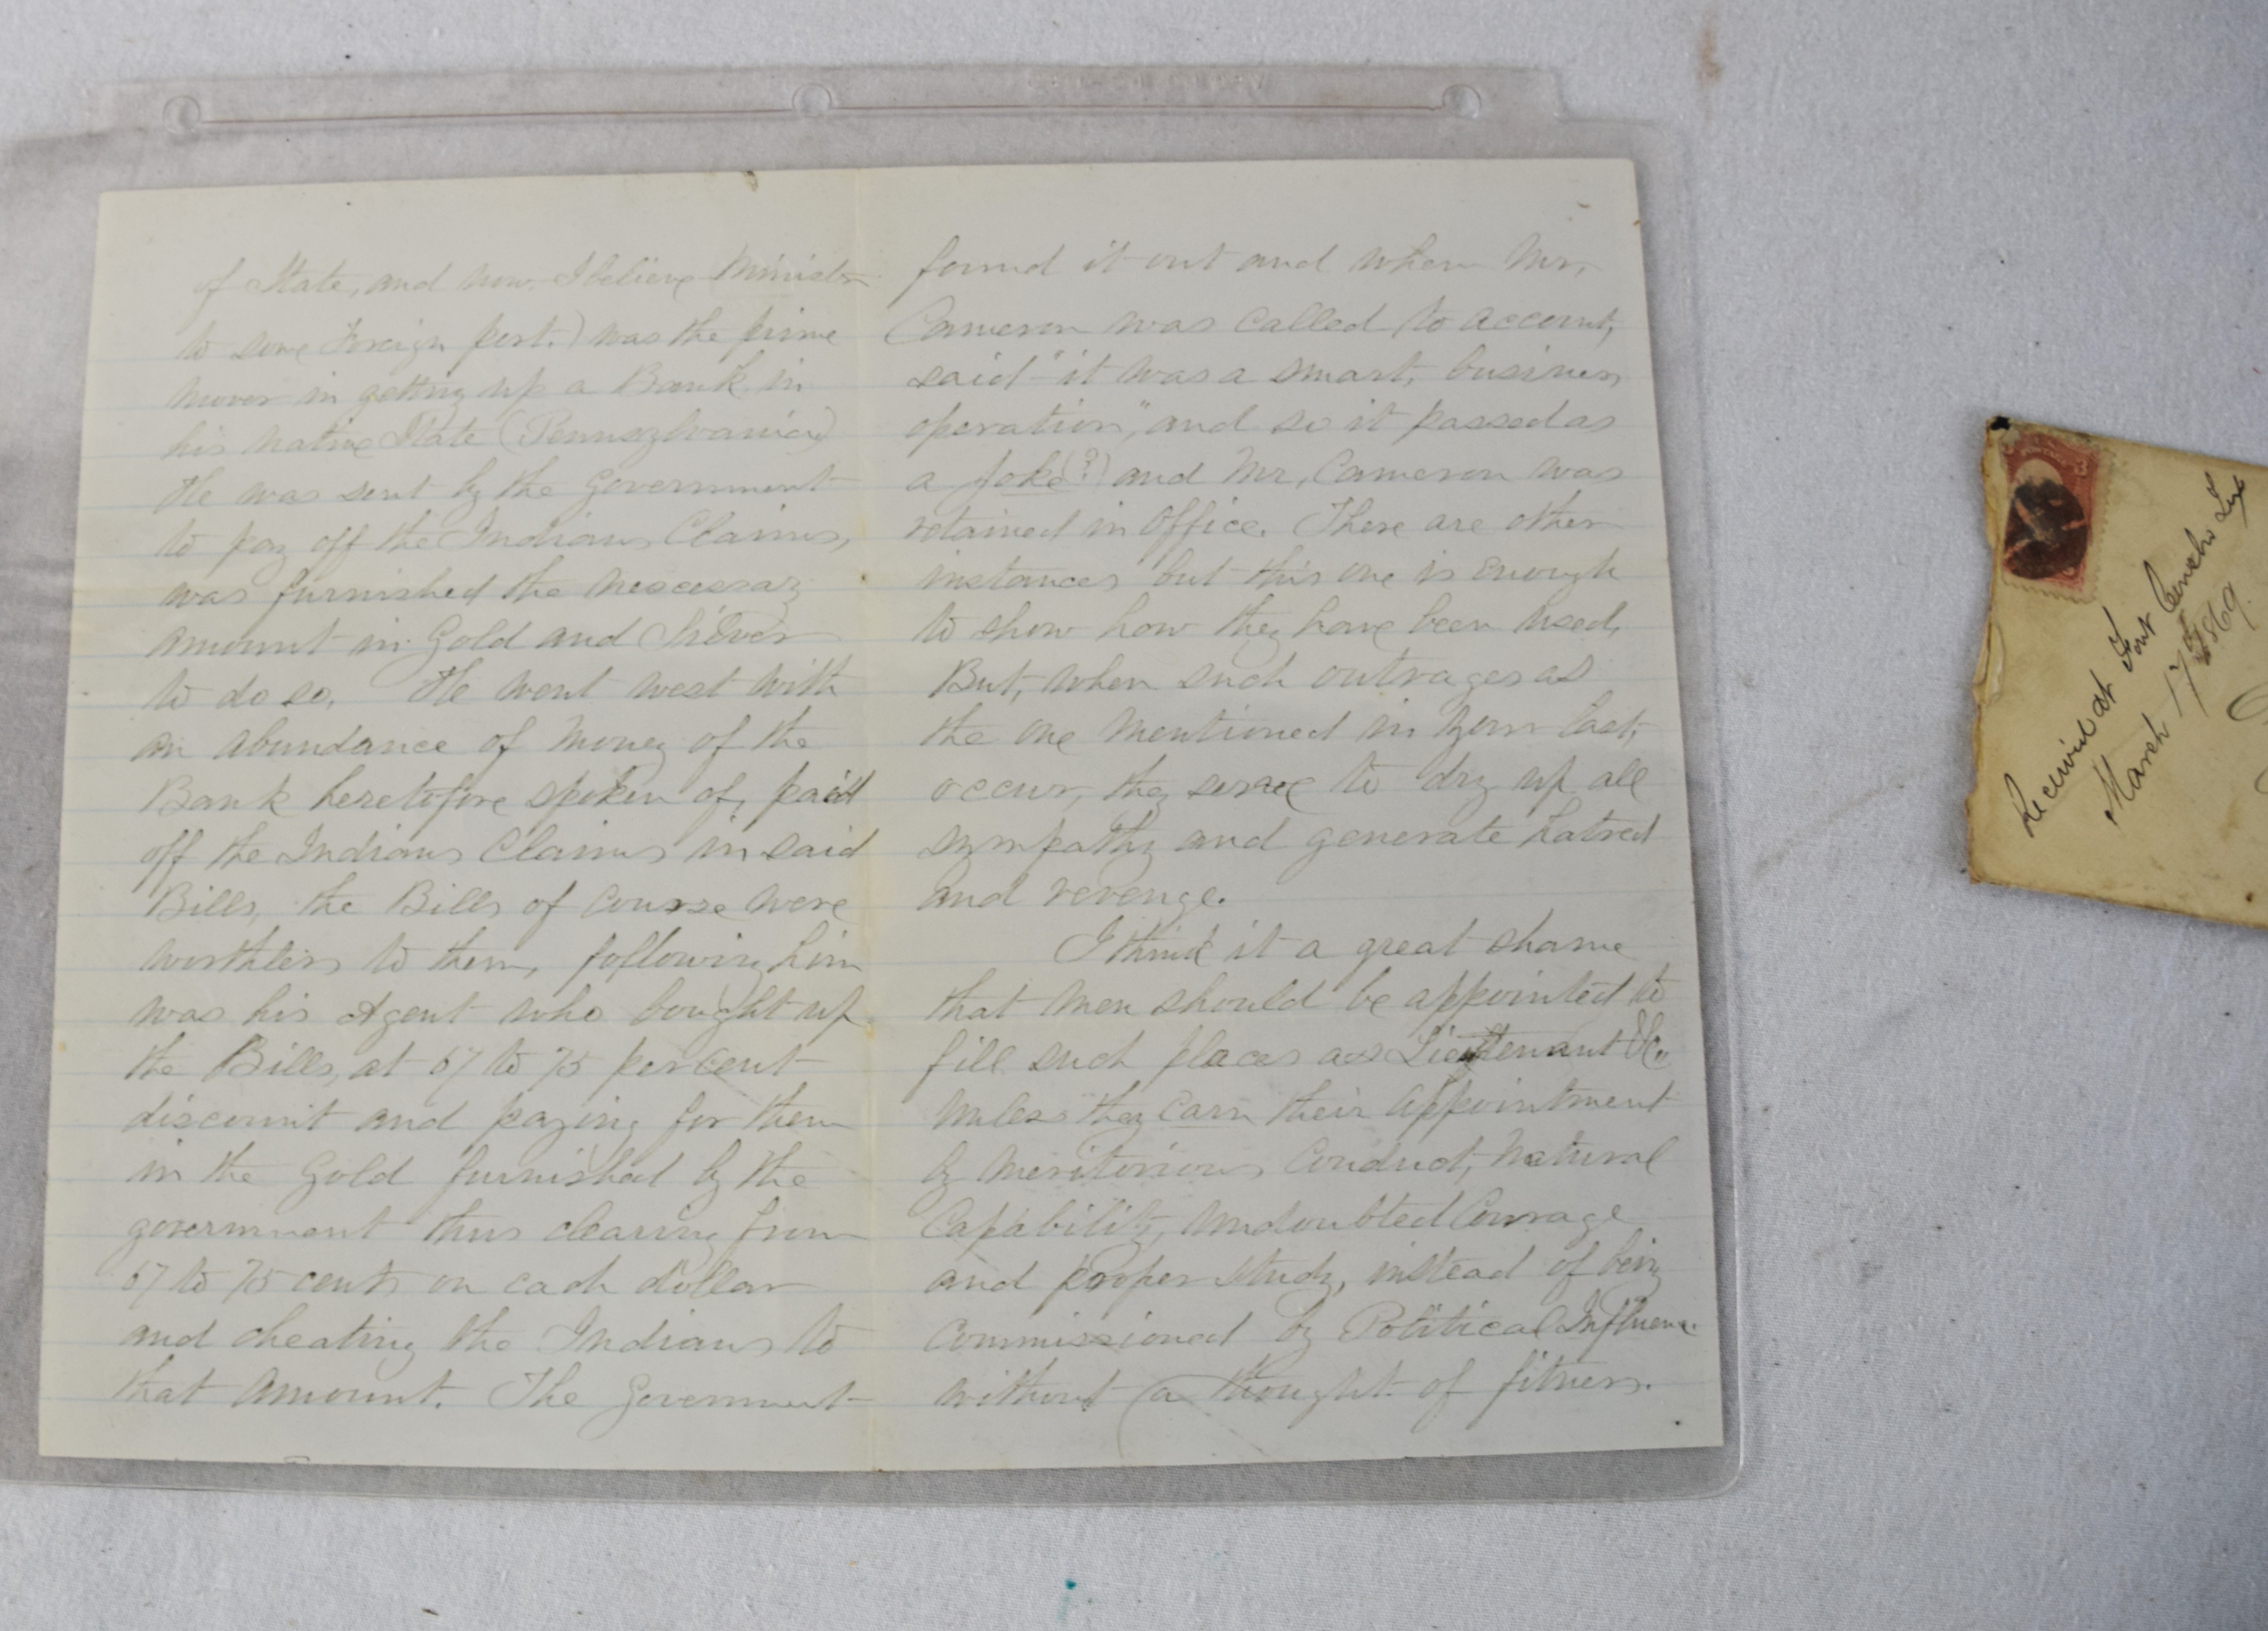 of State, and now I believe Minister
to some Foreign port.) was the prime
mover in getting up a Bank in
his native State (Pennsylvania)
He was sent by the Government
to pay off the Indians Claims,
was furnished the
amount in Gold and Silver
to do so. He went west with
an abundance of money of the
Bank heretofore spoken of, paid
off the Indians Claims in said
Bills, the Bills of course were
worthless to them, following him
was his Agent who bought up
the Bills, at 67 to 75 per cent
discount and paying for them
in the Gold furnished by the
government thus clearing from
67 to 75 cents on each dollar
and cheating the Indians to
that amount. The Government
found it out and when Mr.
Cameron was called to account,
said "it was a smart, business
operation", and so it passed as
a joke (?) and Mr. Cameron was
retained in Office. There are other
instances but this one is enough
to show how they have been used.
But, when such outrages as
the one mentioned in your last,
occur, they serve to dry up all
sympathy and generate hatred
and revenge.
I think it a great shame
that men should be appointed to
fill such places as Lieutenant &c.
unless they earn their appointment
by meritorious conduct, natural
Capability, undoubted Courage
and proper study, instead of being
Commissioned by Political Influence
without a thought of fitness.
3
Received at Fort Concho Tex
March 17th 1869.